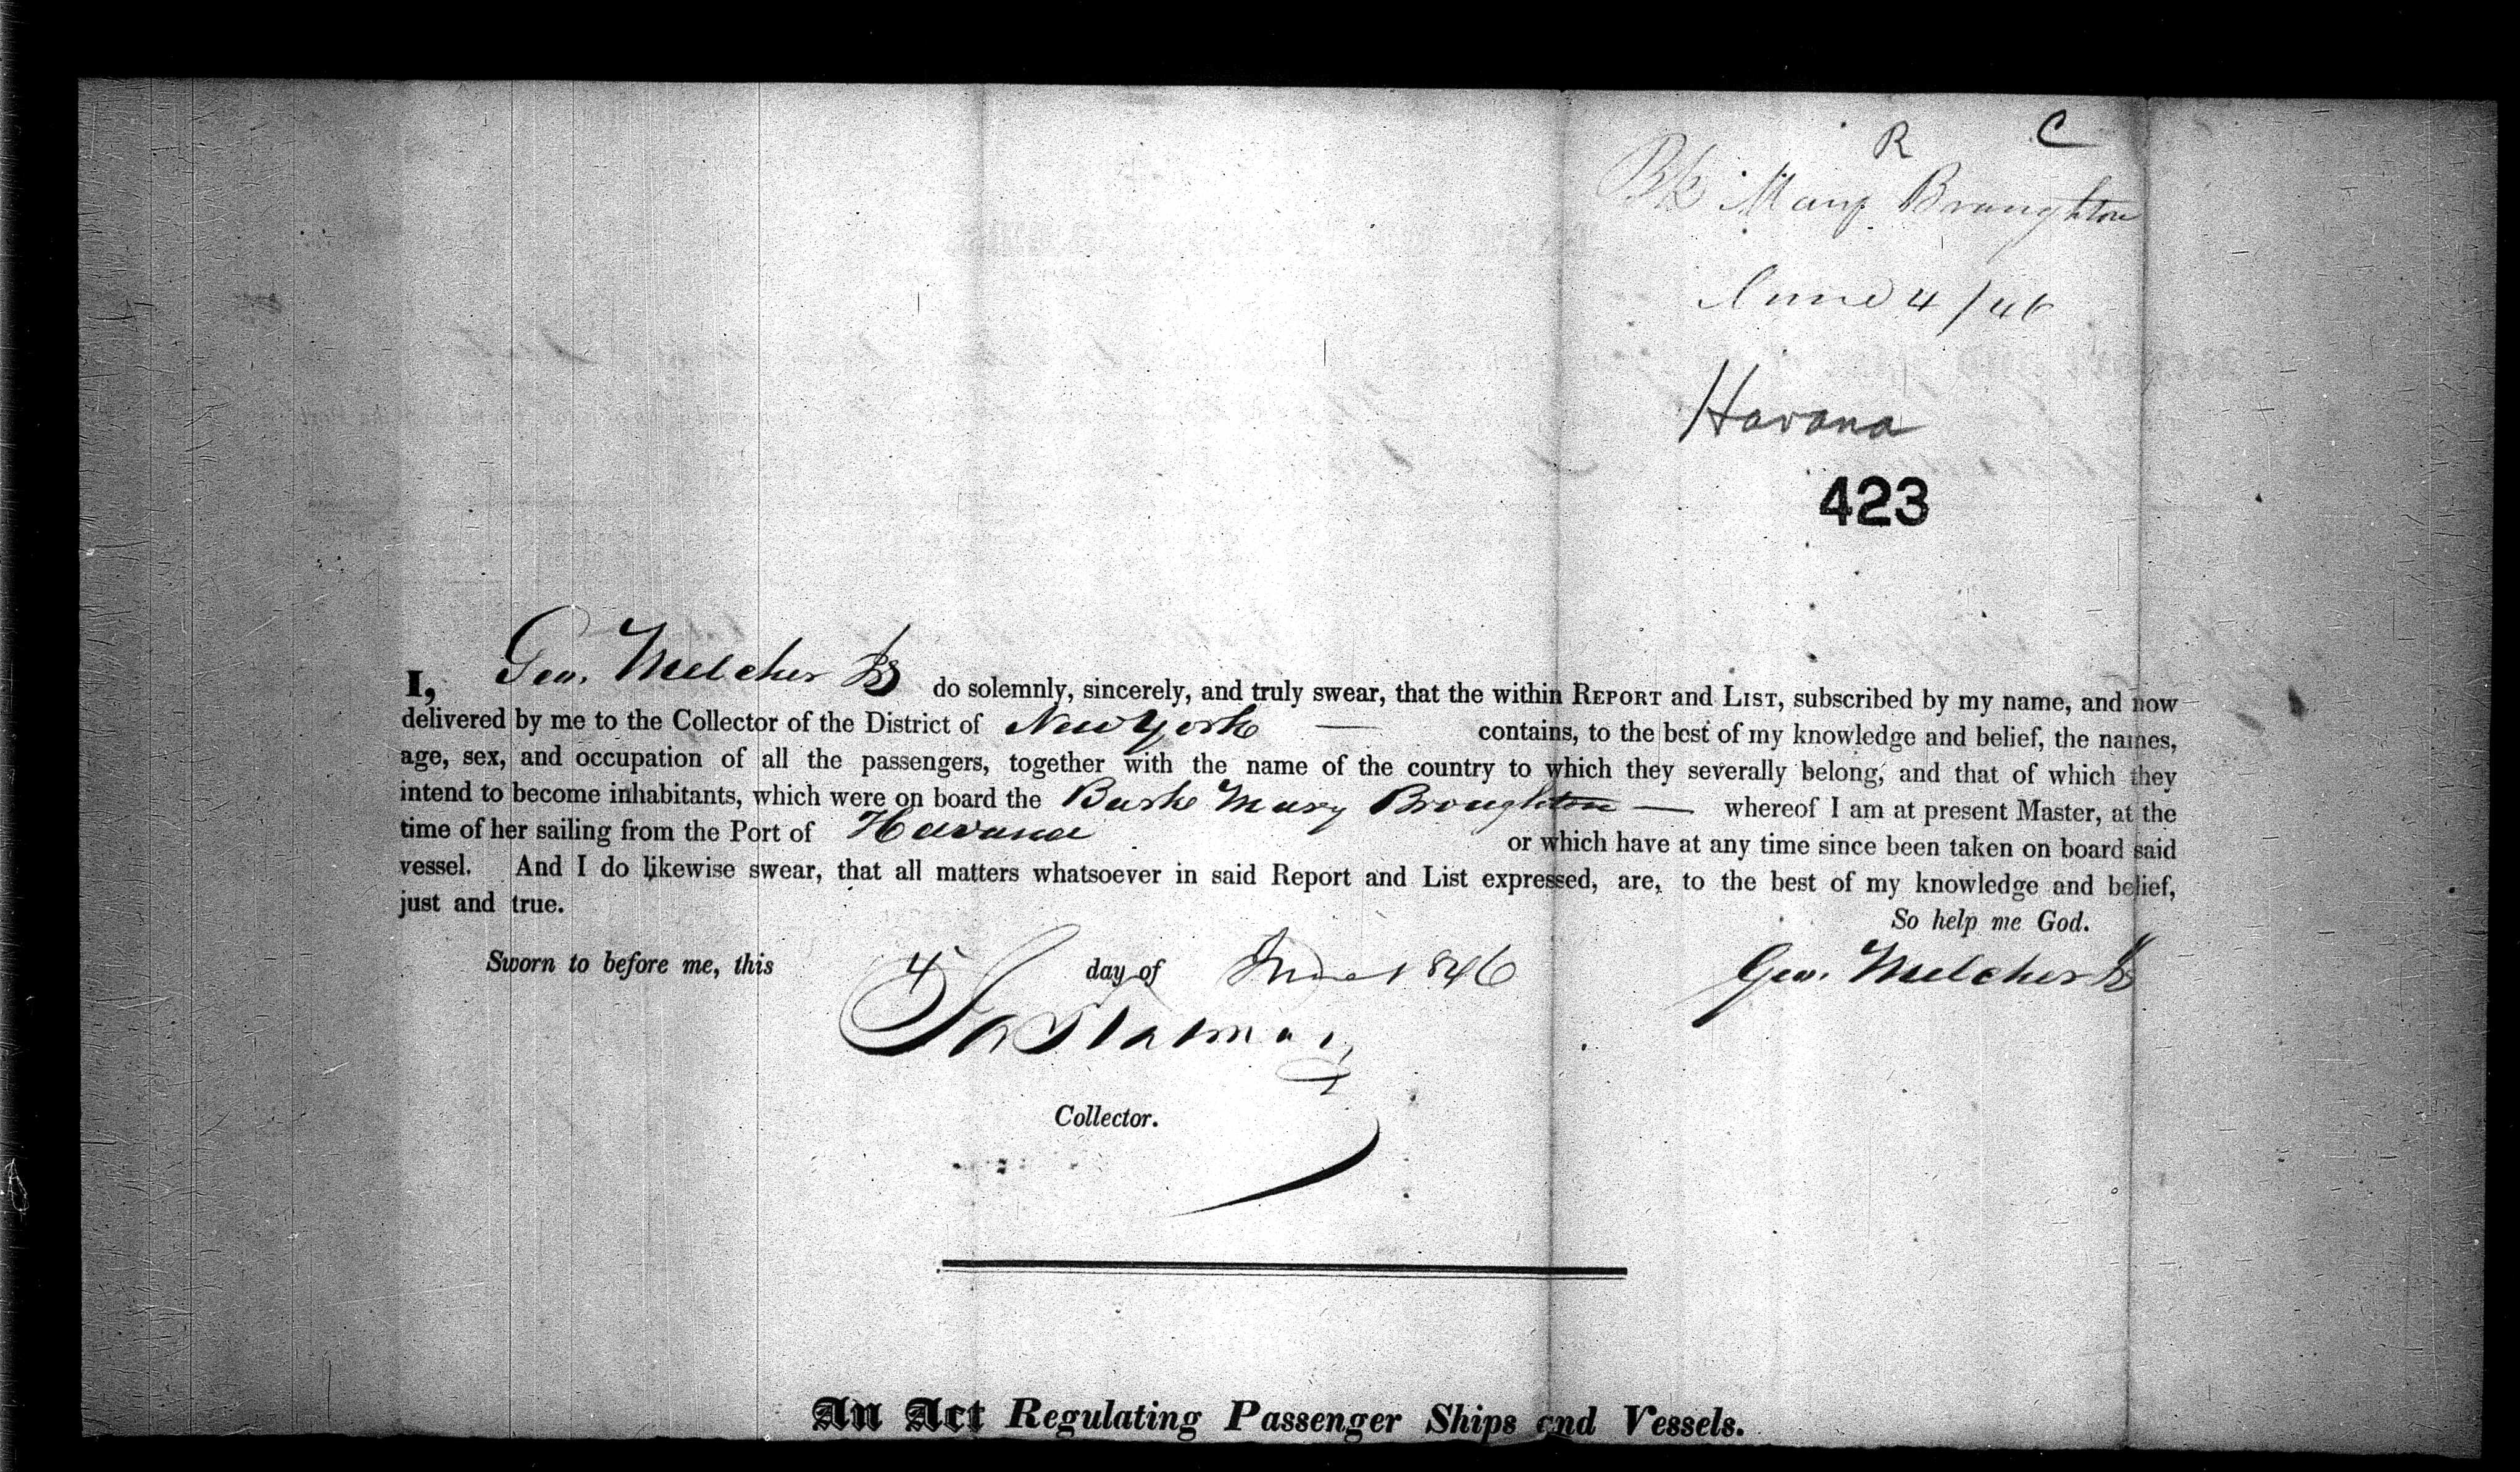 R C
Bk Mary Broughton
June 4/46
Havana
423
I, Geo. Melcher Jr do solemnly, sincerely, and truly swear, that the within REPORT and LIST, subscribed by my name, and now
delivered by me to the Collector of the District of New York — contains, to the best of my knowledge and belief, the names,
age, sex, and occupation of all the passengers, together with the name of the country to which they severally belong, and that of which they
intend to become inhabitants, which were on board the Bark Mary Broughton — whereof I am at present Master, at the
time of her sailing from the Port of Havana or which have at any time since been taken on board said
vessel. And I do likewise swear, that all matters whatsoever in said Report and List expressed, are, to the best of my knowledge and belief,
just and true.
So help me God.
Sworn to before me, this 4 day of June 1846 Geo. Melcher Jr
Collector.
An Act Regulating Passenger Ships and Vessels.